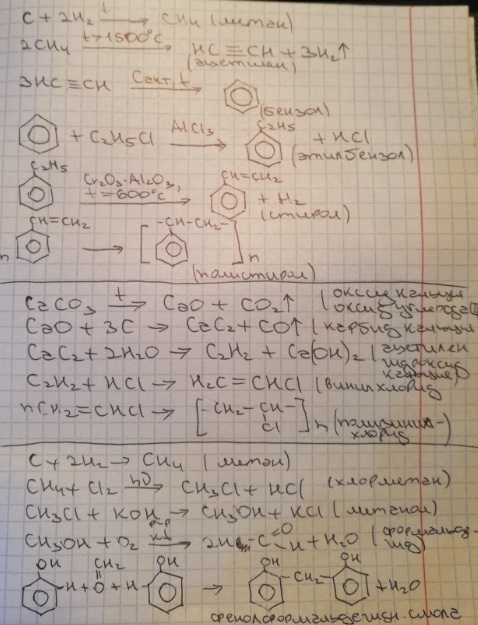 C + 2H₂ —t→ CH₄ (метан)
2CH₄ —t>1500°C→ HC≡CH + 3H₂↑
(ацетилен)
3HC≡CH —Cакт, t→
(бензол)
+ C₂H₅Cl —AlCl₃→ C₂H₅ + HCl
(этилбензол)
C₂H₅ —Cr₂O₃·Al₂O₃, t=600°C→ CH=CH₂ + H₂
(стирол)
n CH=CH₂ → [-CH-CH₂-]n
(полистирол)
CaCO₃ —t→ CaO + CO₂↑ (оксид кальция
оксид углерода
CaO + 3C → CaC₂ + CO↑ (карбид кальция
CaC₂ + 2H₂O → C₂H₂ + Ca(OH)₂ (ацетилен
гидроксид
кальция)
C₂H₂ + HCl → H₂C=CHCl (винилхлорид
nCH₂=CHCl → [-CH₂-CH-]n (поливинил-
Cl хлорид
C + 2H₂ → CH₄ (метан)
CH₄ + Cl₂ —hν→ CH₃Cl + HCl (хлорметан)
CH₃Cl + KOH → CH₃OH + KCl (метанол)
р-р
CH₃OH + O₂ → 2H-C=O H + H₂O (формальде-
гид
OH CH₂ OH OH OH
-H + O + H- → -CH₂- + H₂O
фенолформальдегидн. смола